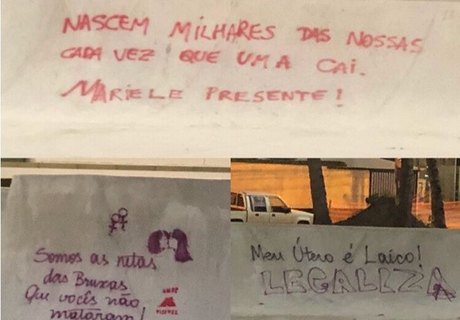 NASCEM MILHARES DAS NOSSAS
CADA VEZ QUE UMA CAI.
MARIELE PRESENTE!
Somos as netas
das Bruxas
Que vocês não
mataram!
Meu Útero é Laico!
LEGALIZA